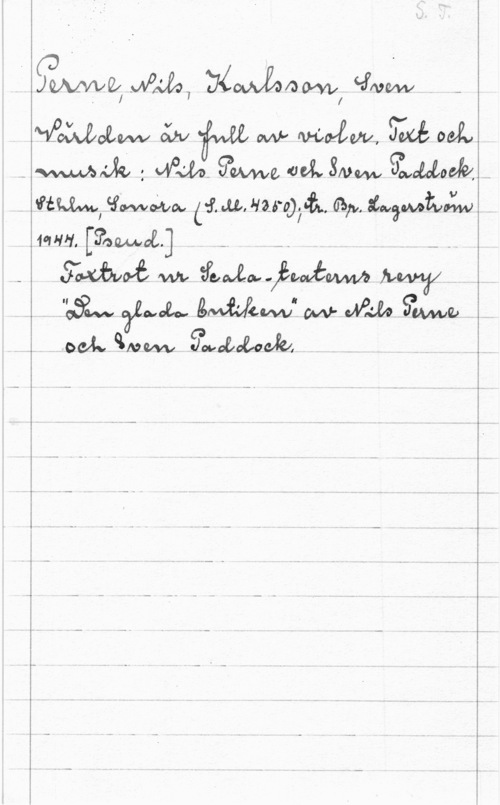 S. T.
Perne, Nils, Karlsson, Sven
Världen är full av violer. Text och
musik : Nils Perne och Sven Paddock.
Sthlm, Sonora (S.M. 4350); tr. Br. Lagerström
1944. [Pseud.]
Foxtrot ur Scala-teaterns revy
"Den glada butiken" av Nils Perne
och Sven Paddock.